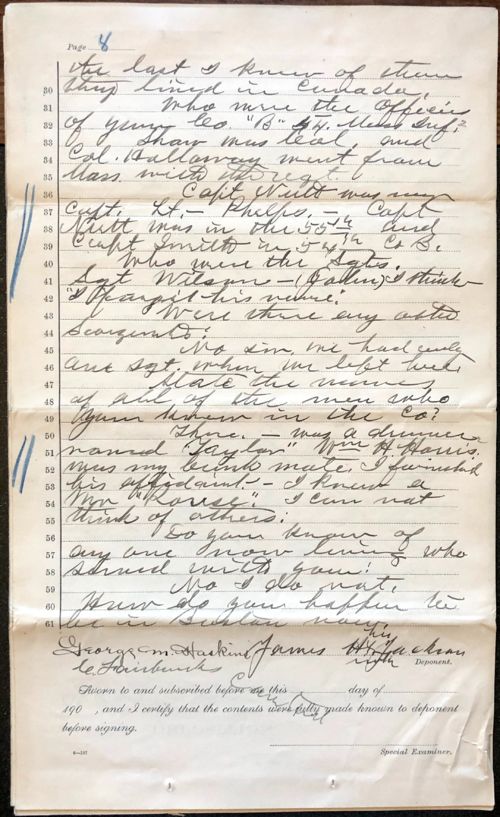 Page 8
the last I knew of them
30 they lived in Canada.
31 Who were the officers
32 of your Co. "B" 54 Mass Inf.?
33 Shaw was Col, and
34 Col. Hallaway went from
35 Mass. with the regt.
36 Capt Nutt was my
37 Capt. Lt. - Phelps. - Capt
38 Nutt was in the 55th and
39 Capt Smith in 54th Co B.
40 Who were the Sgts.
41 Sgt Wilson - (John) I think
42 "I forgit his name."
43 Were there any other
44
45 No sir, we had only
46 one sgt. when we left here
47 State the names
48 of all of the men who
49 you knew in the Co?
50 There - was a drummer
51 named "Taylor" Wm H. Harris
52 was my bunk mate, I furnished
53 his affidavit. - I knew a
54 Mr "Rouse." I can not
55 think of others.
56 Do you know of
57 any one now living who
58 served with you?
59 No I do not.
60 How do you happen to
61 be in Boston now?
George M Haskins James H. his Jackson
C. Fairbanks mark Deponent.
Sworn to and subscribed before me this day of
190 , and I certify that the contents were fully made known to deponent
before signing.
6—187 Special Examiner.